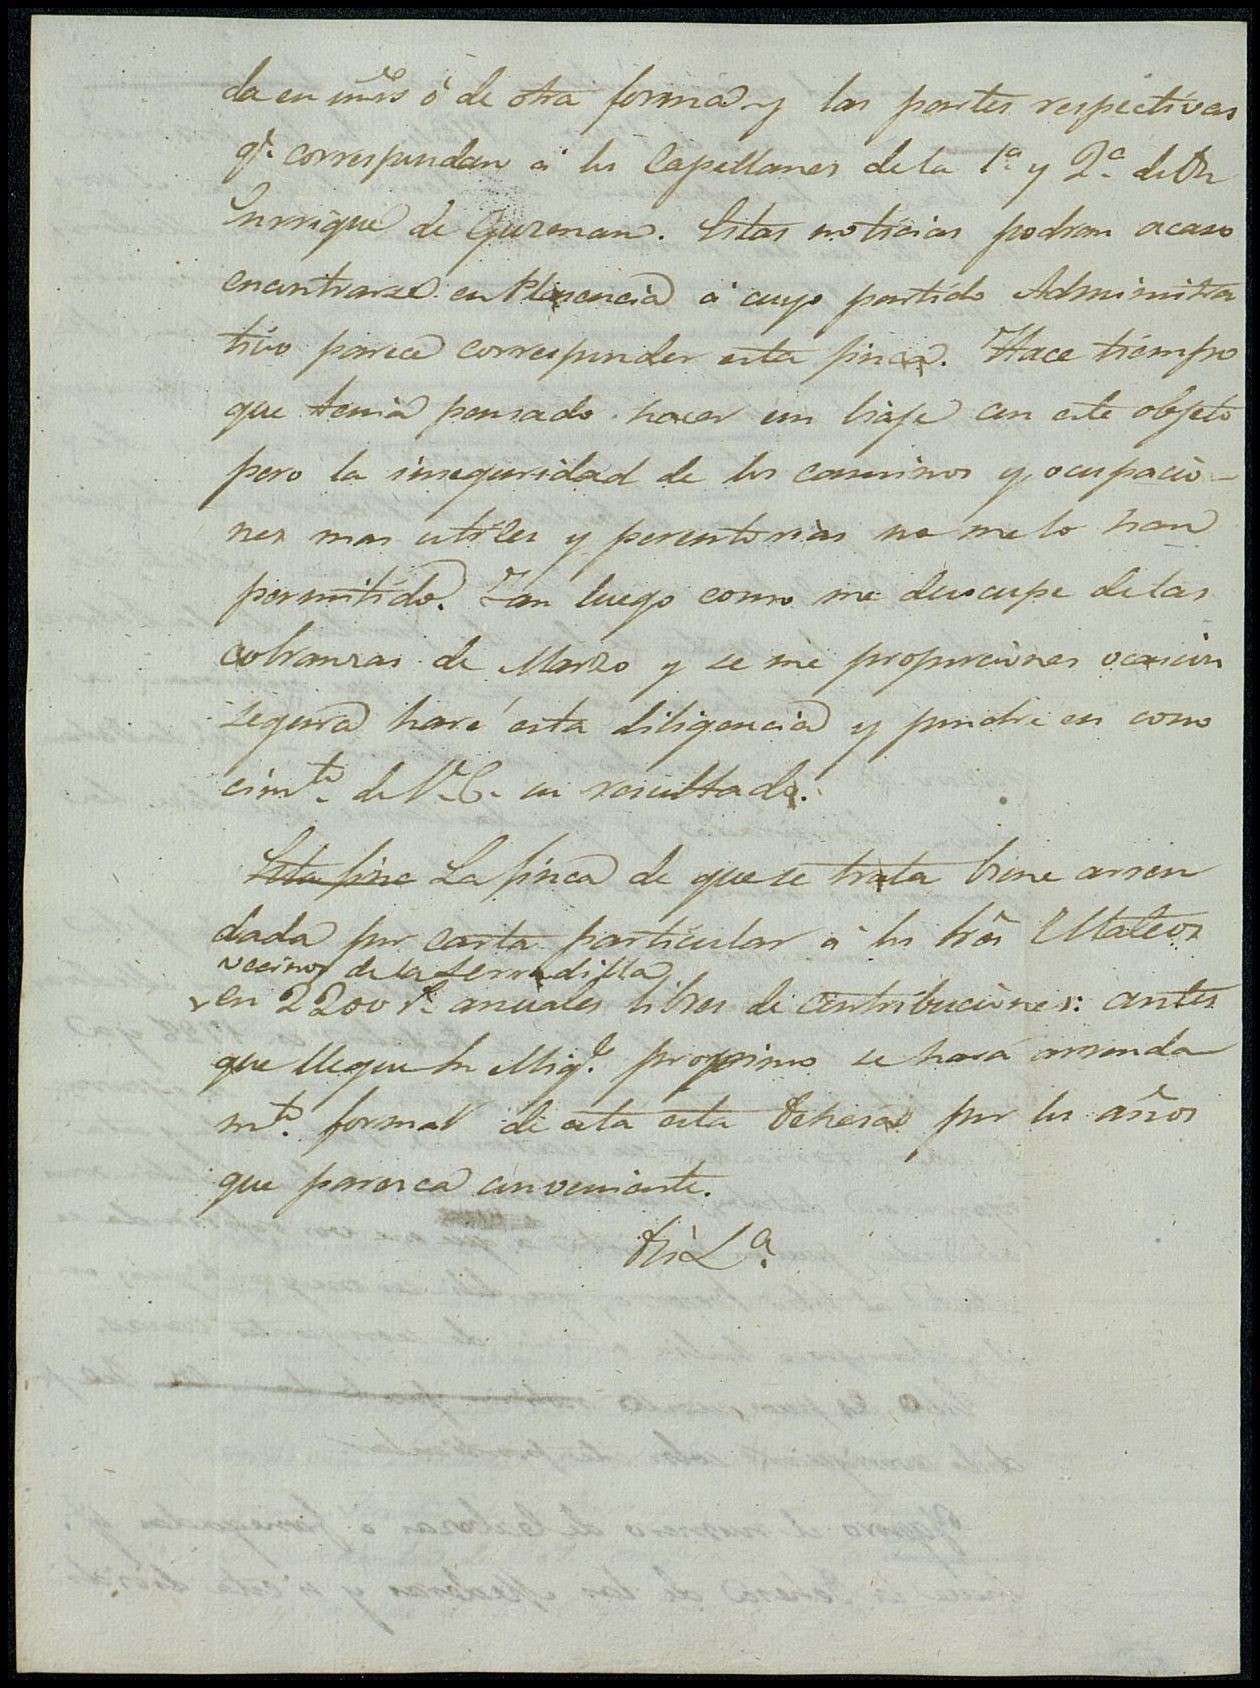 da en mrs ó de otra forma y las partes respectivas
qe. correspondan á los Capellanes de la 1a. y 2a. de Dn
Enrrique de Guzman. Estas noticias podran acaso
encontrarse en Plasencia á cuyo partido Administra
tivo parece corresponder esta finca. Hace tiempo
que tenia pensado hacer un biaje con este objeto
pero la inseguridad de los caminos y ocupacio-
nes mas utiles y perentorias no me lo han
permitido. Tan luego como me desocupe de las
cobranzas de Marzo y se me proporciones ocasion
segura haré esta diligencia y pondre en cono
cimto. de V.E. su resultado.
Esta finc La finca de que se trata tiene arren
dada por carta particular á los Mateos
vecinos de la Serradilla
en 2200 rs. anuales libres de contribuciones: antes
que llegue Sn Migl. proxximo se hará arrenda
mto. formal de esta esta Dehesa por los años
que paresca conveniente.